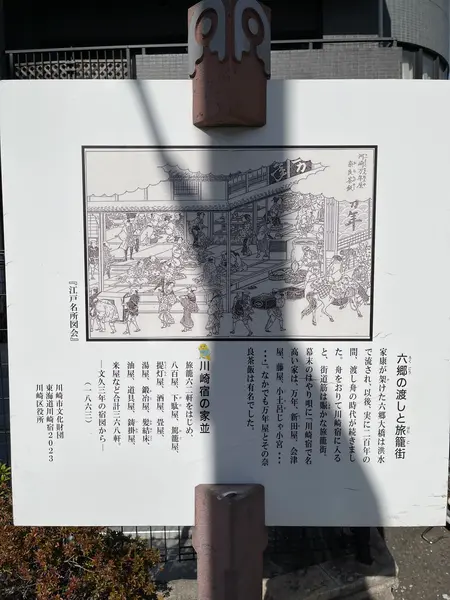 六郷の渡しと旅籠街
家康が架けた六郷大橋は洪水
で流され、以後、実に二百年の
間、渡し舟の時代が続きまし
た。舟をおりて川崎宿に入る
と、街道筋は賑やかな旅籠街。
幕末のはやり唄に「川崎宿で名
高い家は、万年、新田屋、会津
屋、藤屋、小土呂じゃ小宮・・・
・・・」。なかでも万年屋とその奈
良茶飯は有名でした。
川崎宿の家並
旅籠六二軒をはじめ、
八百屋、下駄屋、駕籠屋、
提灯屋、酒屋、畳屋、
湯屋、鍛冶屋、髪結床、
油屋、道具屋、鋳掛屋、
米屋など合計三六八軒。
―文久三年の宿図から―
(一八六三)
河崎万年屋
奈良茶飯
万年
『江戸名所図会』
川崎市文化財団
東海道川崎宿2023
川崎区役所